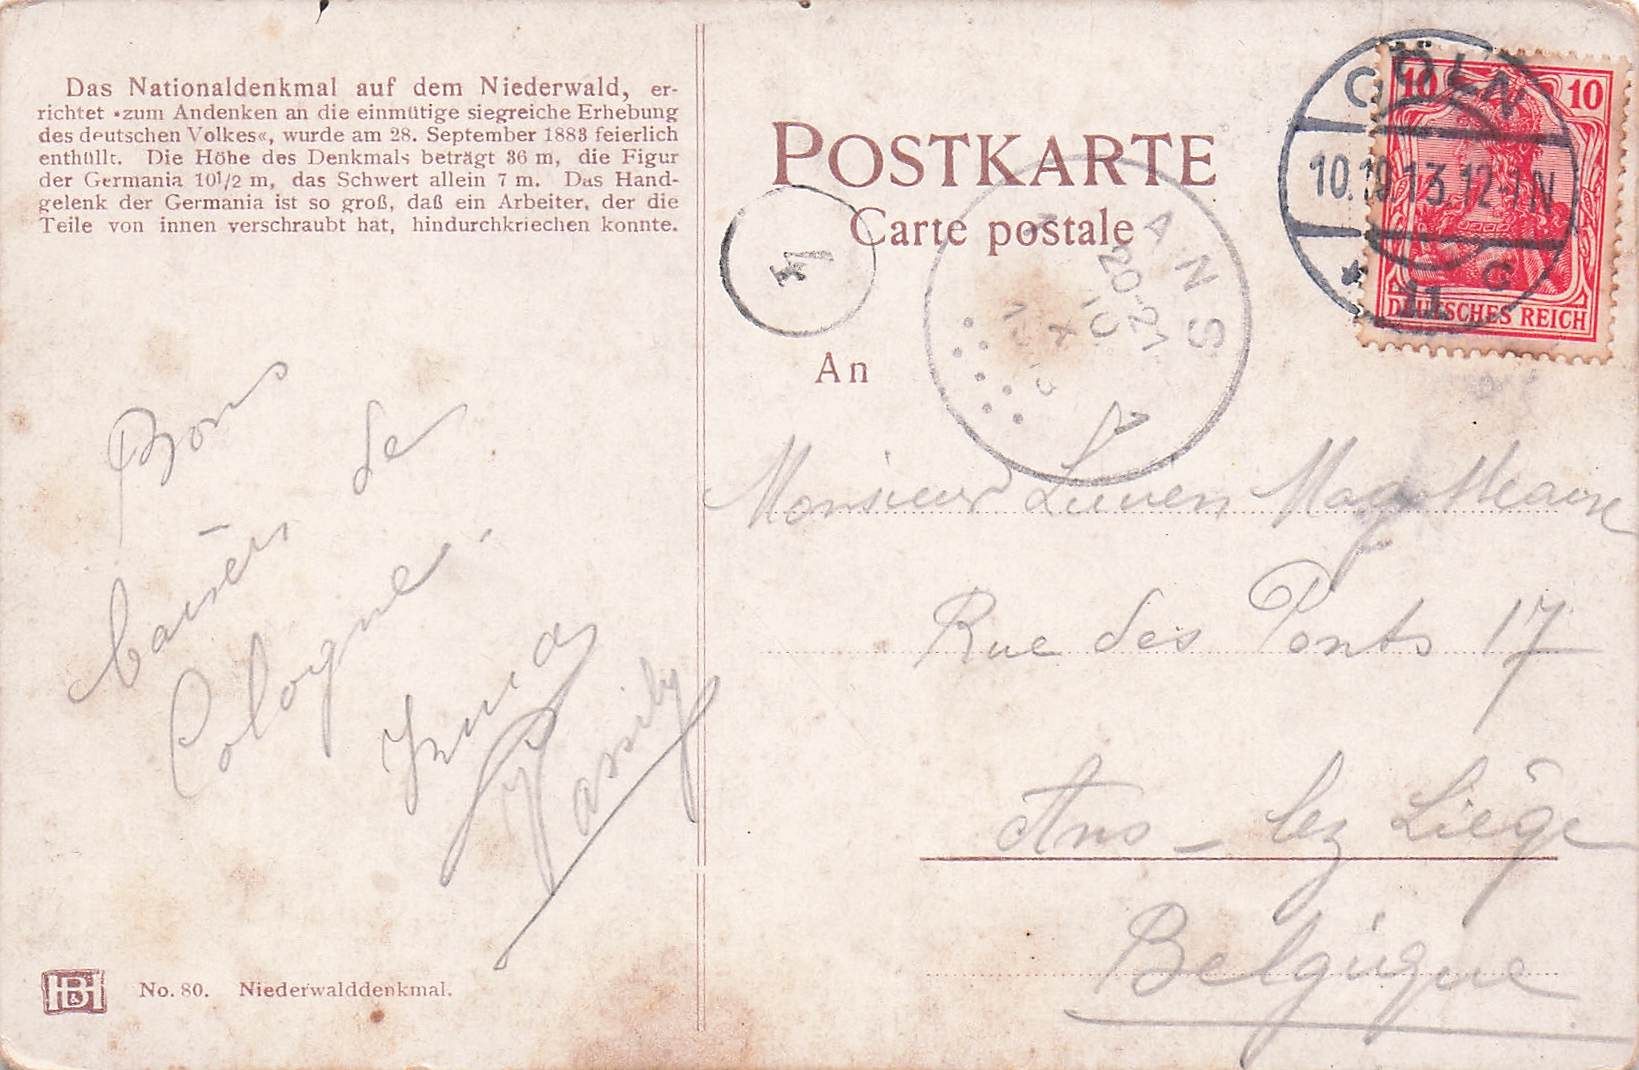 Das Nationaldenkmal auf dem Niederwald, er-
richtet »zum Andenken an die einmütige siegreiche Erhebung
des deutschen Volkes«, wurde am 28. September 1883 feierlich
enthüllt. Die Höhe des Denkmals beträgt 36 m, die Figur
der Germania 10 1/2 m, das Schwert allein 7 m. Das Hand-
gelenk der Germania ist so groß, daß ein Arbeiter, der die
Teile von innen verschraubt hat, hindurchkriechen konnte.
Bons
baisers de
Cologne.
HB&H
No. 80. Niederwalddenkmal.
POSTKARTE
Carte postale
An
4
ANS
CÖLN
10.10.13.12-1N
* 11 c
10 10
DEUTSCHES REICH
Monsieur
Rue des Ponts 17
Ans - lez Liège
Belgique